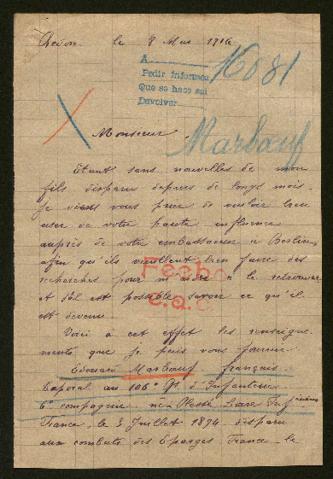 le 9 Mai 1916
A
Pedir informes
Que se hace sui
Devolver
16081
Marbœuf
Monsieur
Etant sans nouvelles de mon
fils disparu depuis de longs mois
Je viens vous prier de vouloir bien
user de votre haute influence
auprès de votre ambassadeur à Berlin
afin qu'ils veuillent bien faire des
recherches pour m'aider à le retrouver
et s'il est possible savoir ce qu'il
est devenu
Fecho
Voici à cet effet les renseigne
ments que je puis vous fournir
Edouard Marbœuf français
Caporal au 106e Rt d'Infanterie
6e compagnie né Plessé Loire Infrieure
France, le 3 Juillet 1894, disparu
aux combats des Eparges France le